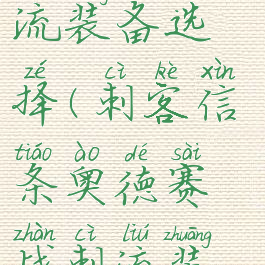 流装备选
zé cì kè xìn
择(刺客信
tiáo ào dé sài
条奥德赛
zhàn cì liú zhuāng
战刺流装